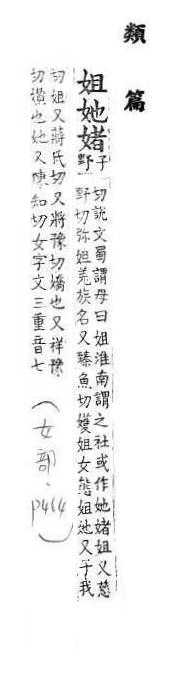 類篇
姐她媎
子野
切說文蜀謂母曰姐淮南謂之社或作她媎姐又慈
野切弥姐羌族名又臻魚切㜘姐女態姐她又子我
切姐又蔣氏切又將豫切嬌也又祥豫
切嬻也她又陳知切女字文三重音七
(女部.P464)